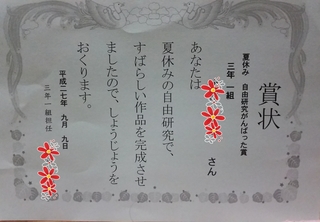 賞状
夏休み 自由研究がんばった賞
三年 一組
さん
あなたは
夏休みの自由研究で、
すばらしい作品を完成させ
ましたので、しょうじょうを
おくります。
平成二七年 九月 九日
三年 一組担任